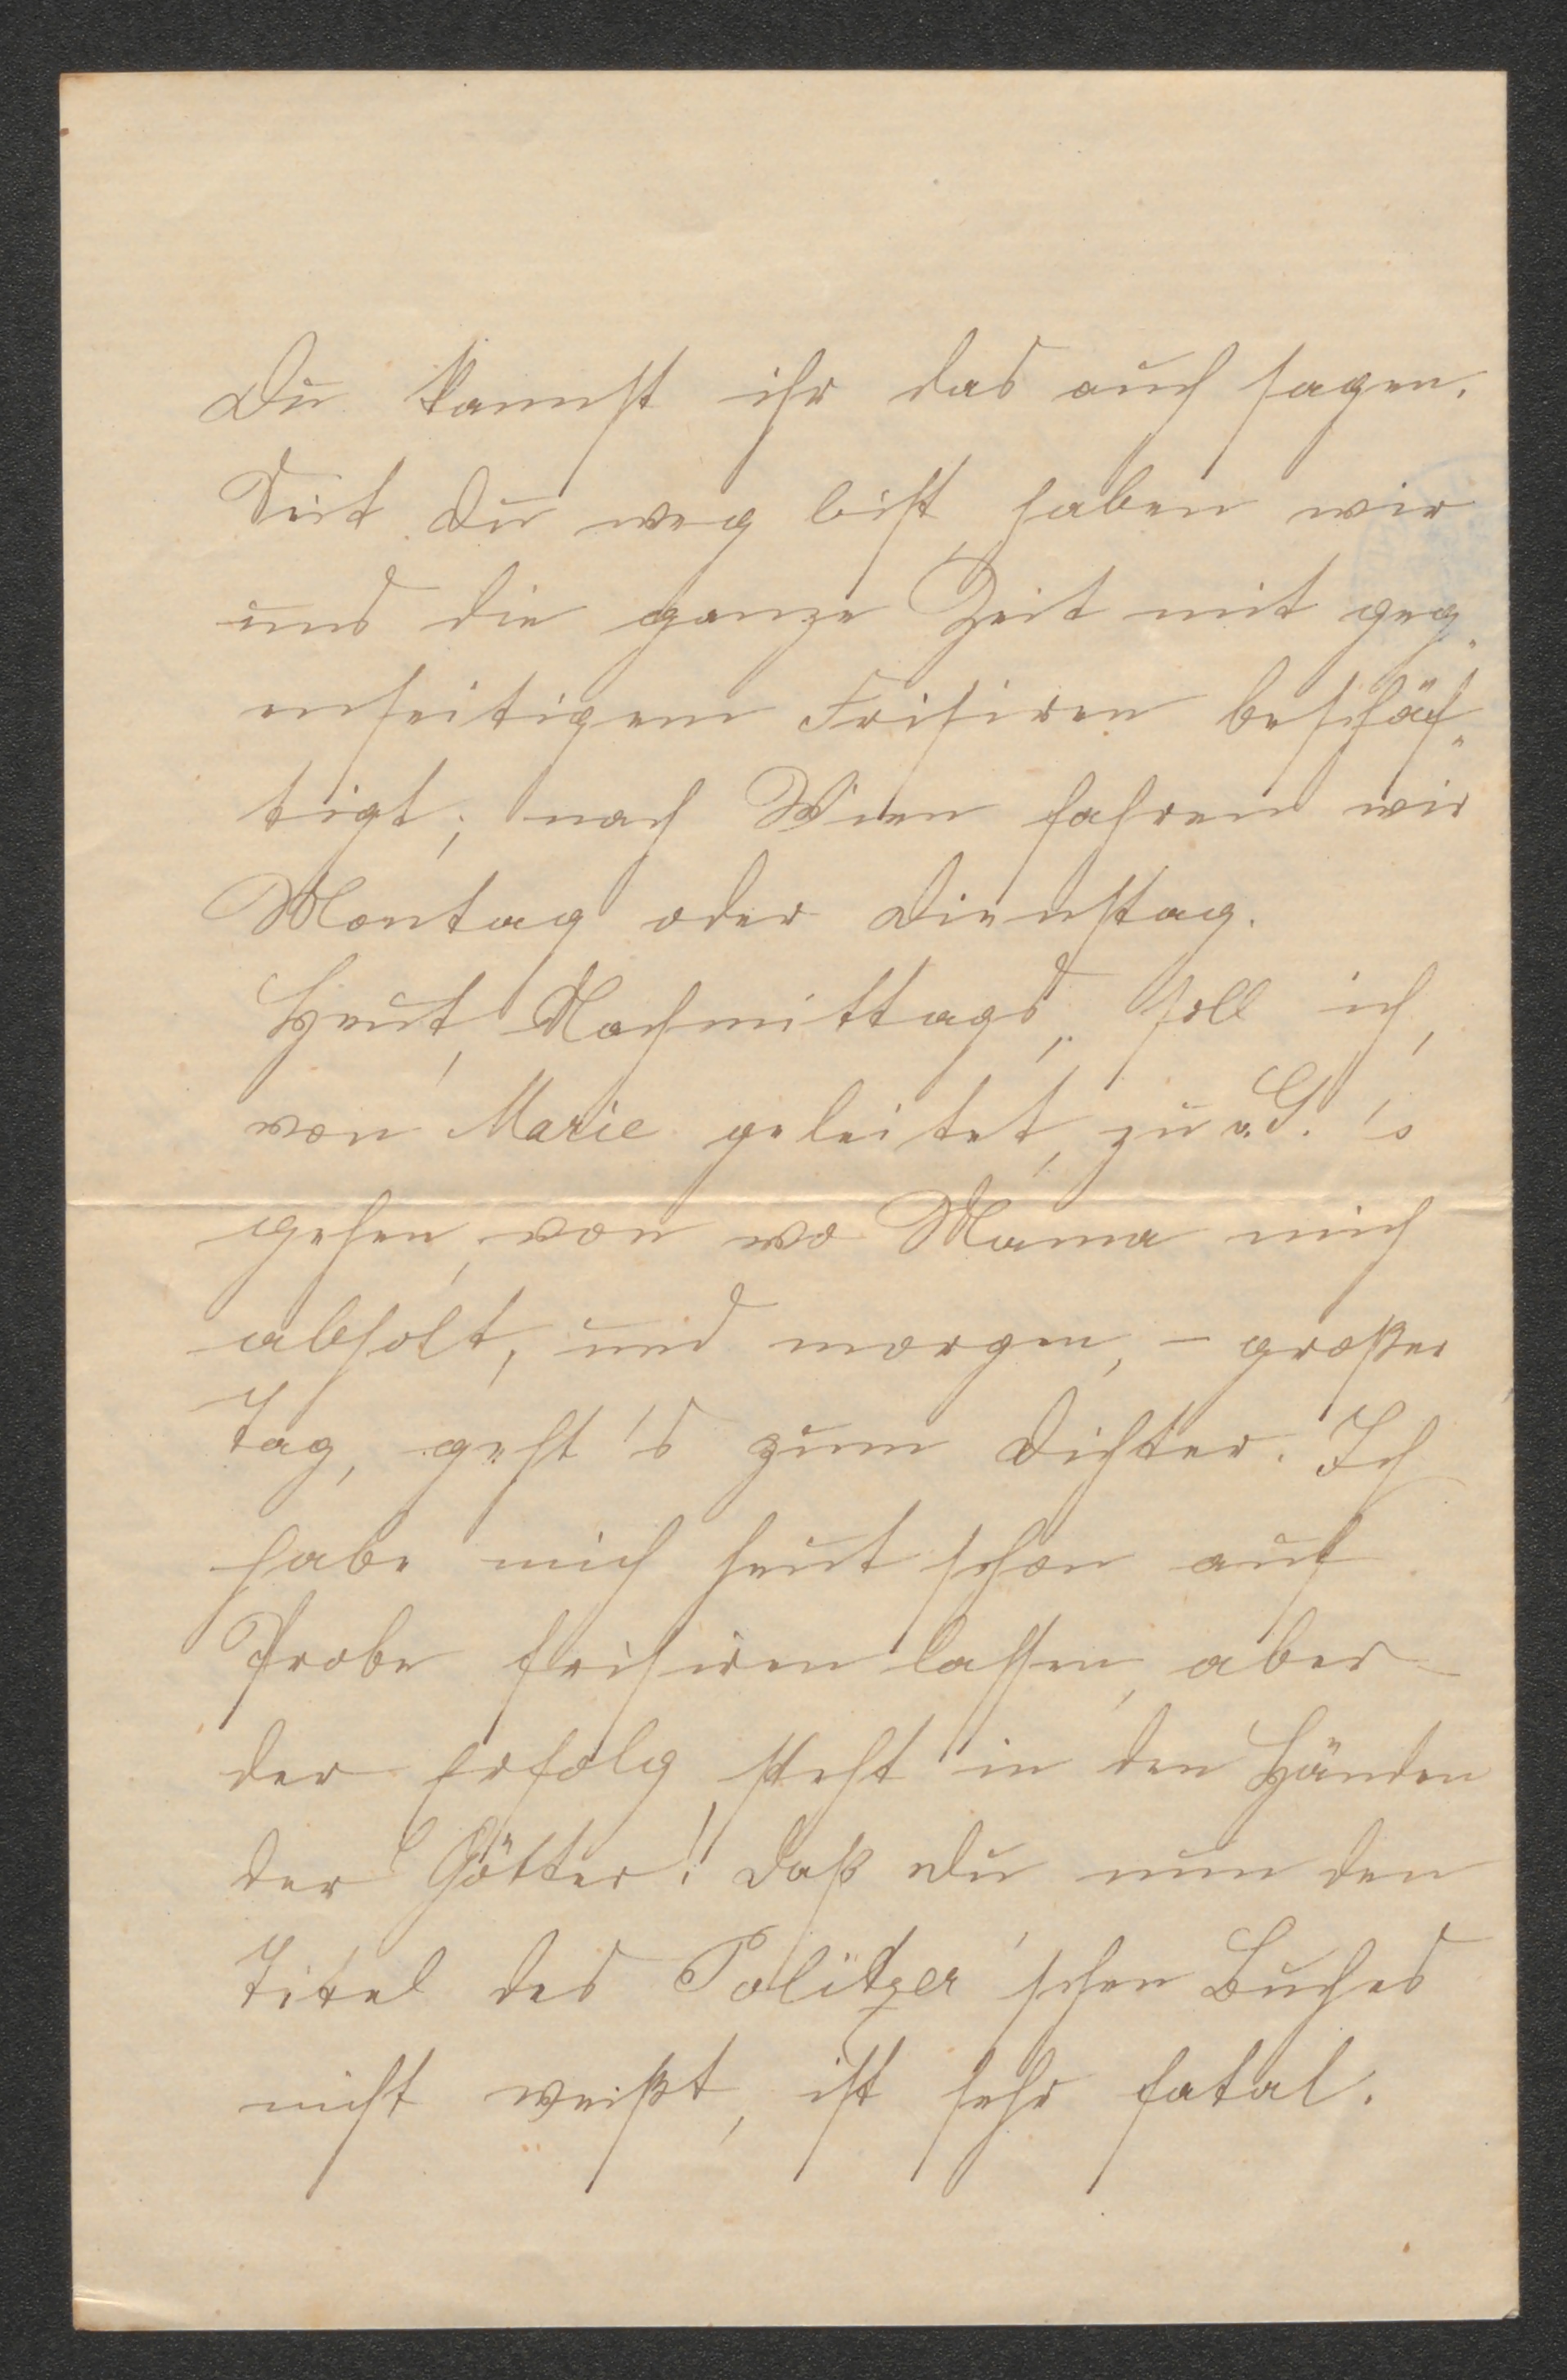 Du kannst ihr das auch sagen.
Seit Du weg bist, haben wir
uns die ganze Zeit mit geg„
enseitigem Frisiren beschäf„
tigt; nach Wien fahren wir
Montag oder Dienstag.
Heut, Nachmittags, soll ich,
von Marie geleitet, zu v. G.'s
gehen, von wo Mama mich
abholt, und morgen, – großer
Tag, geht's zum Dichter. Ich
habe mich heut schon auf
Probe frisiren lassen, aber
der Erfolg steht in den Händen
der Götter! Daß Du nun den
Titel des Politzer'schen Buches
nicht weißt, ist sehr fatal.